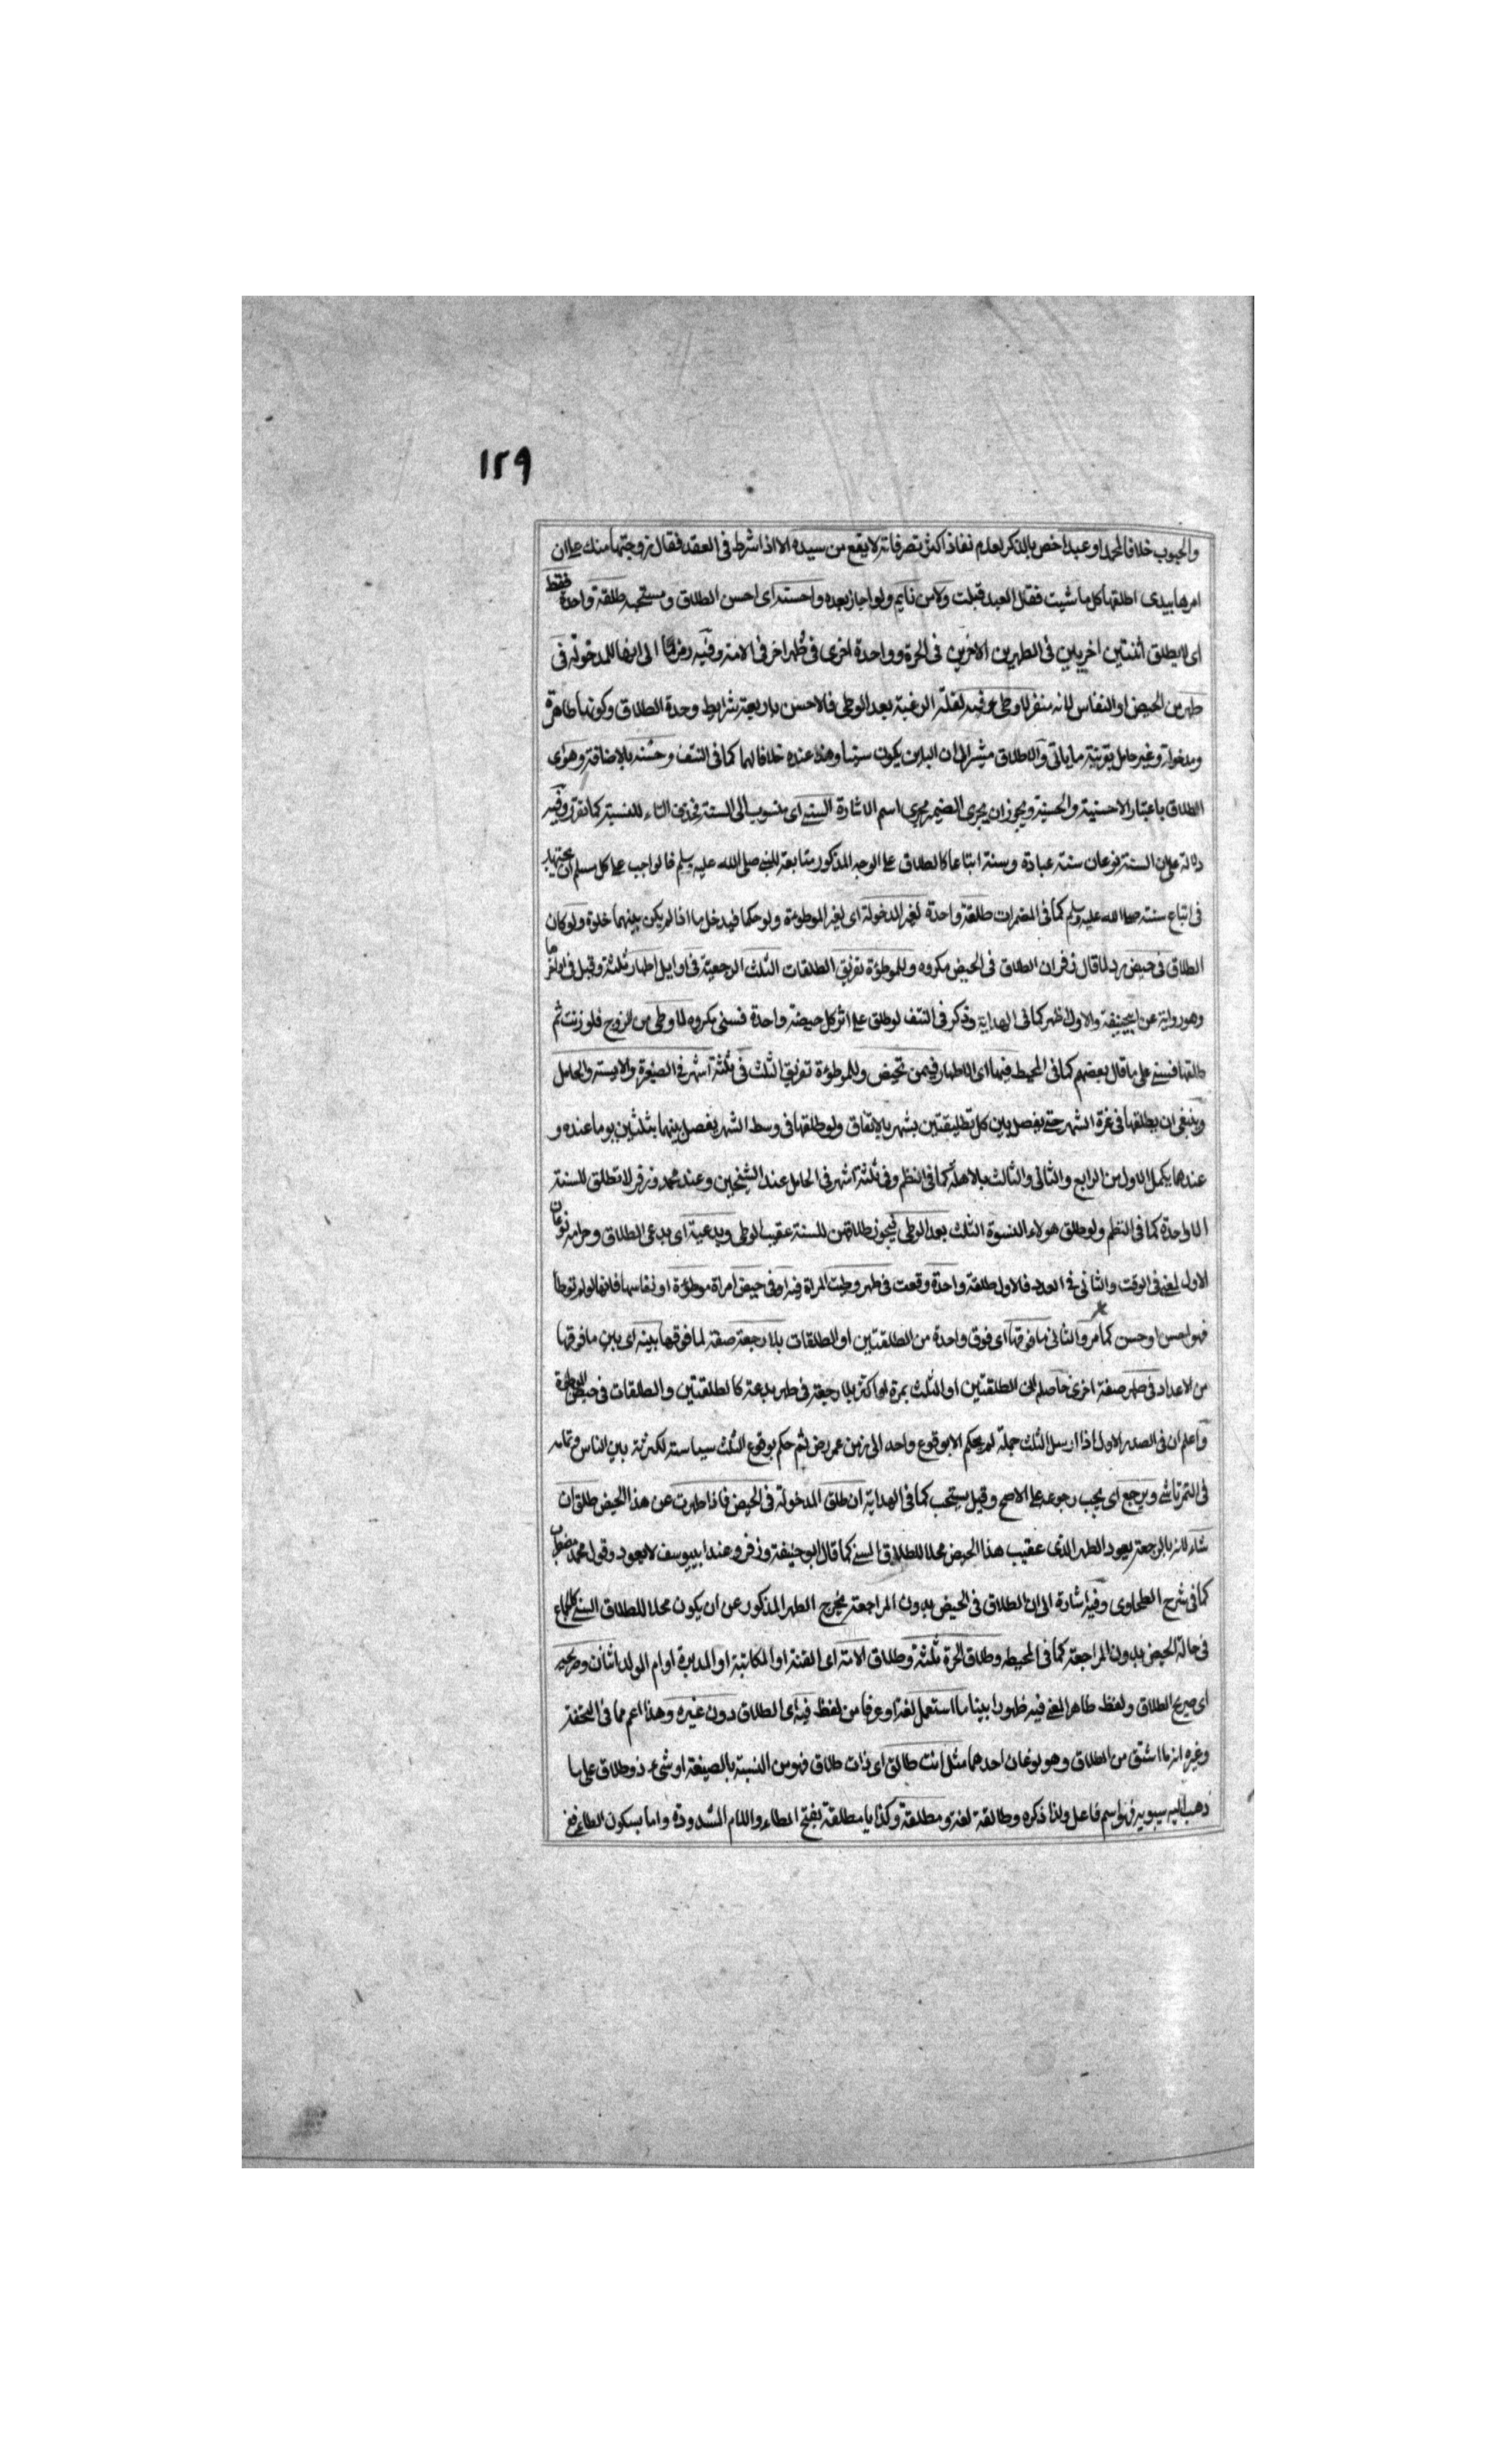 ١٢٩
والمجبوب خلافا لمحمد او عبدا خص بالذكر لعدم نفاذ اكثر تصرفاته لا يقع من سيده الا اذا شرط فى العقد فقال زوجتها منك على ان
امرها بيدى اطلقها كل ما شيت فقال العبد قبلت ولا من نايم ولو اجاز بعده واحسنه اى احسن الطلاق ومستحبه طلقة واحدة فقط
اى لا يطلق اثنتين اخريين فى الطهرين الاخرين فى الحرة وواحدة اخرى فى طهر اخر فى الامة وفيه الى انها للمدخولة فى
طهر من الحيض او النفاس لانه منفر لا وطى فيه لقلة الرغبة بعد الوطى فالاحسن باربعة شرايط وحدة الطلاق وكونها طاهرة
ومدخولة وغير حامل بقرينة ما ياتى والاطلاق مشير الى ان الباين يكون سنيا وهذا عنده خلافا لهما كما فى النتف وحسنه بالاضافة وهو اى
الطلاق باعتبار الاحسنية والحسنية ويجوز ان يجرى الضمير مجرى اسم الاشارة السنى اى منسوب الى السنة فحذف التاء للنسبة كما تقرر وفيه
دلالة على ان السنة نوعان سنة عبادة وسنة اتباعا كالطلاق على الوجه المذكور متابعة للنبى صلى الله عليه وسلم فالواجب على كل مسلم ان يجتهد
فى اتباع سنته صلى الله عليه وسلم كما فى المضمرات طلقة واحدة لغير المدخولة اى لغير الموطوءة ولو حكما فيدخل ما اذا لم يكن بينهما خلوة ولو كان
الطلاق فى حيض رد لما قال زفر ان الطلاق فى الحيض مكروه وللموطوءة تفريق الطلقات الثلث الرجعية فى اوايل اطهار ثلثة وقيل فى اواخرها
وهو رواية عن ابيحنيفة والاول اظهر كما فى الهداية وذكر فى النتف لو طلق على اثر كل حيضة واحدة فسنى مكروه لا وطى من الزوج فلو زنت ثم
طلقها فسنى على ما قال بعضهم كما فى المحيط فيها اى الاطهار فيمن تحيض وللموطوءة تفريق الثلث فى ثلثة اشهر فى الصغيرة والايسة والحامل
وينبغى ان يطلقها فى غرة الشهر حتى يفصل بين كل تطليقتين بشهر بالاتفاق ولو طلقها فى وسط الشهر يفصل بينهما بثلثين يوما عنده و
عندهما يكمل الاول من الرابع والثانى والثالث بالاهلة كما فى النظم وفى ثلثة اشهر فى الحامل عند الشيخين وعند محمد وزفر لا تطلق للسنة
الا واحدة كما فى النظم ولو طلق هولاء النسوة الثلث بعد الوطى فيجوز طلاقهن للسنة عقيب الوطى وبدعية اى بدعى الطلاق وحرامه نوعان
الاول لمعنى فى الوقت والثانى فى العدد فالاول طلقة واحدة وقعت فى طهر وطيت المراة فيه او فى حيض امراة موطوءة او نفاسها فانها لو لم توطا
فهو احسن او حسن كما مر والثانى ما فوقها اى فوق واحدة من الطلقتين او الطلقات بلا رجعة صفة لما فوقها بينه اى بين ما فوقها
من الاعداد فى طهر صفة اخرى حاصله ان الطلقتين او الثلث بمرة او اكثر بلا رجعة فى طهر بدعة كالطلقتين والطلقات فى حيض الموطوءة
واعلم ان فى الصدر الاول اذا ارسل الثلث جملة لم يحكم الا بوقوع واحد الى زمن عمر رض ثم حكم بوقوع الثلث سياسة لكثرته بين الناس وتمامه
فى التمرتاشى ويرجع اى يجب رجوعه على الاصح وقيل يستحب كما فى الهداية ان طلق المدخولة فى الحيض فاذا طهرت عن هذا الحيض طلق ان
شاء لانه بالرجعة يعود الطهر الذى عقيب هذا الحيض محلا للطلاق السنى كما قال ابو حنيفة وزفر وعند ابى يوسف لا يعود وقول محمد مضطرب
كما فى شرح الطحاوى وفيه اشارة الى ان الطلاق فى الحيض بدون المراجعة يخرج الطهر المذكور عن ان يكون محلا للطلاق السنى كالجماع
فى حالة الحيض بدون المراجعة كما فى المحيط وطلاق الحرة ثلثة وطلاق الامة اى القنة او المكاتبة او المدبرة او ام الولد اثنان وصريحه
اى صريح الطلاق ولفظ ظاهر المعنى فيه ظهورا بينا ما استعمل لغة او عرفا من لفظ فيه اى الطلاق دون غيره وهذا اعم مما فى التحفة
وغيره انه ما اشتق من الطلاق وهو نوعان احدهما مثل انت طالق اى ذات طلاق فهو من النسبة بالصيغة او شىء ذو طلاق على ما
ذهب اليه سيبويه فهو اسم فاعل ولذا ذكره وطالقة لغة ومطلقة وكذا يا مطلقة بفتح الطاء واللام المشدودة واما بسكون الطاء فمن